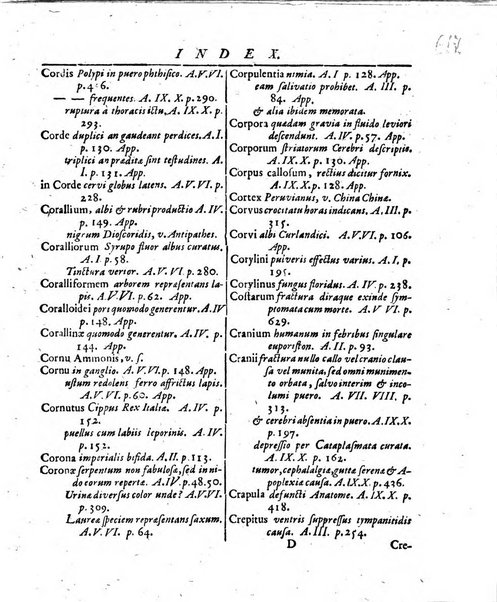 INDEX.
Cordis Polypi in puero phthisico. A.V.VI.
p. 4 6.
— — frequentes. A. IX. X. p. 290.
ruptura à thoracis ictu, A. IX. X. p.
293.
Corde duplici an gaudeant perdices. A. I.
p. 130. App.
triplici an prædita sint testudines. A.
I. p. 131. App.
in Corde cervi globus latens. A.V.VI. p.
228.
Corallium, albi & rubri productio A. IV.
p. 149. App.
nigrum Dioscoridis, v. Antipathes.
Coralliorum Syrupo fluor albus curatus.
A. I p. 58.
Tinctura verior. A. VI. p. 280.
Coralliformem arborem repræsentans la-
pis. A.V.VI. p. 62. App.
Coralloidei pori quomodo generentur. A. IV
p. 148. App.
Corallinæ quomodo generentur. A. IV. p.
144. App.
Cornu Ammonis, v. s.
Cornu in ganglio. A. VI. p. 148. App.
ustum redolens ferro affrictus lapis.
A.V.VI. p. 60. App.
Cornutus Cippus Rex Italiæ. A. IV. p.
152.
puellus cum labiis leporinis. A. IV.
p. 152.
Corona imperialis bifida. A. II. p. 113.
Coronæ serpentum non fabulosæ, sed in ni-
do eorum repertæ. A. IV. p. 48. 50.
Urinæ diversus color unde? A.V.VI.
p. 309.
Laureæ speciem repræsentans saxum.
A.V.VI. p. 64.
Corpulentia nimia. A. I p. 128. App.
eam salivatio prohibet. A. III. p.
84. App.
& alia ibidem memorata.
Corpora quædam gravia in fluido leviori
descendunt. A. IV. p. 57. App.
Corporum striatorum Cerebri descriptio.
A. IX. X. p. 130. App.
Corpus callosum, rectius dicitur fornix.
A. IX. X. p. 128. App.
Cortex Peruvianus, v. China Chinæ.
Corvus crocitatu horas indicans. A. III. p.
315.
Corvi albi Curlandici. A. VI. p. 106.
App.
Corylini pulveris effectus varius. A. I. p.
195.
Corylinus fungus floridus. A. IV. p. 86.
Costarum fractura diraque exinde sym-
ptomata cum morte. A V VI. p.
629.
Cranium humanum in febribus singulare
euporiston. A. II. p. 93.
Cranii fractura nullo callo vel cranio clau-
sa vel munita, sed omni munimen-
to orbata, salvo interim & inco-
lumi puero. A. VII. VIII. p.
313.
& cerebri absentia in puero. A. IX. X.
p. 197.
depressio per Cataplasmata curata.
A. IX. X. p. 162.
tumor, cephalalgiæ, guttæ serenæ & A-
poplexiæ causa. A. IX. X. p. 436.
Crapula defuncti Anatome. A. IX. X. p.
418.
Crepitus ventris suppressus tympanitidis
causa. A. III. p. 254.
D
Cre-